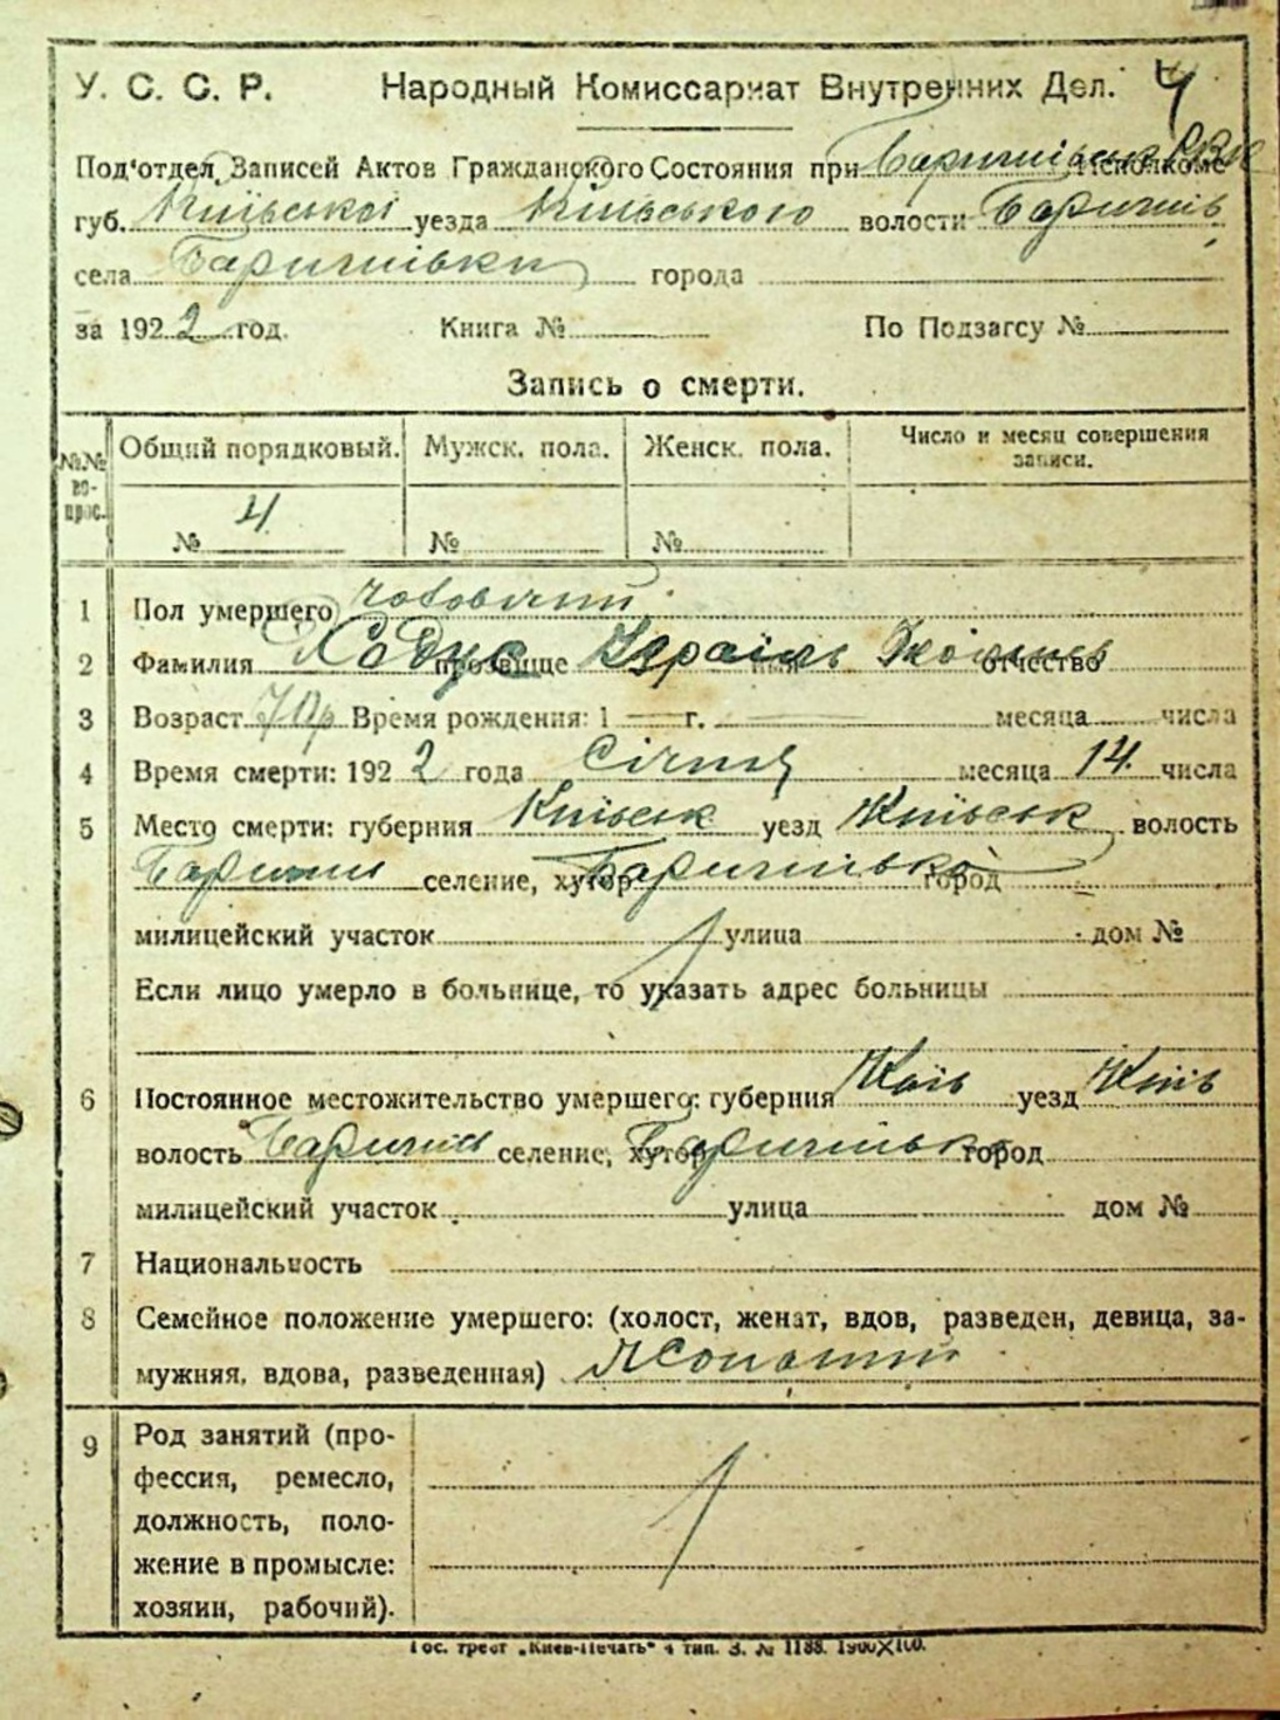 У. С. С. Р. Народный Комиссариат Внутренних Дел. 4
Под'отдел Записей Актов Гражданского Состояния при Исполкоме
губ. Київської уезда Київського волости Баришів
села Баришівки города
за 1922 год. Книга № По Подзагсу №
Запись о смерти.
№№ во- прос. Общий порядковый. Мужск. пола. Женск. пола. Число и месяц совершения записи.
№ 4 № №
1 Пол умершего чоловичий
2 Фамилия прозвище Ізраїль имя отчество
3 Возраст 70р Время рождения: 1 — г. — месяца числа
4 Время смерти: 1922 года Січня месяца 14 числа
5 Место смерти: губерния Київськ уезд Київськ волость
Баришів селение, хутор Баришівка город
милицейский участок улица дом №
Если лицо умерло в больнице, то указать адрес больницы
6 Постоянное местожительство умершего: губерния Київ уезд Київ
волость Баришів селение, хутор Баришівка город
милицейский участок улица дом №
7 Национальность
8 Семейное положение умершего: (холост, женат, вдов, разведен, девица, за-
мужняя, вдова, разведенная)
9 Род занятий (про-
фессия, ремесло,
должность, поло-
жение в промысле:
хозяин, рабочий).
Гос. трест „Киев-Печать“ 4 тип. З. № 1188. 1900X100.